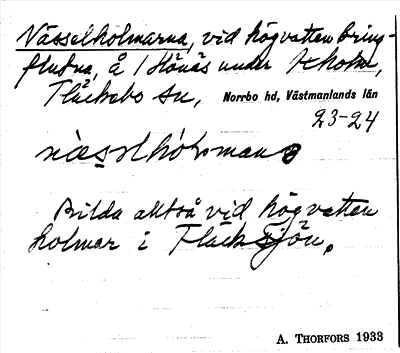 Nässelholmarna, vid högvatten kring-
flutna, å 1 Hönäs under
Fläckebo sn, Norrbo hd, Västmanlands län
23-24
Bilda alltså vid högvatten
holmar i Fläcksjön.
A. THORFORS 1933